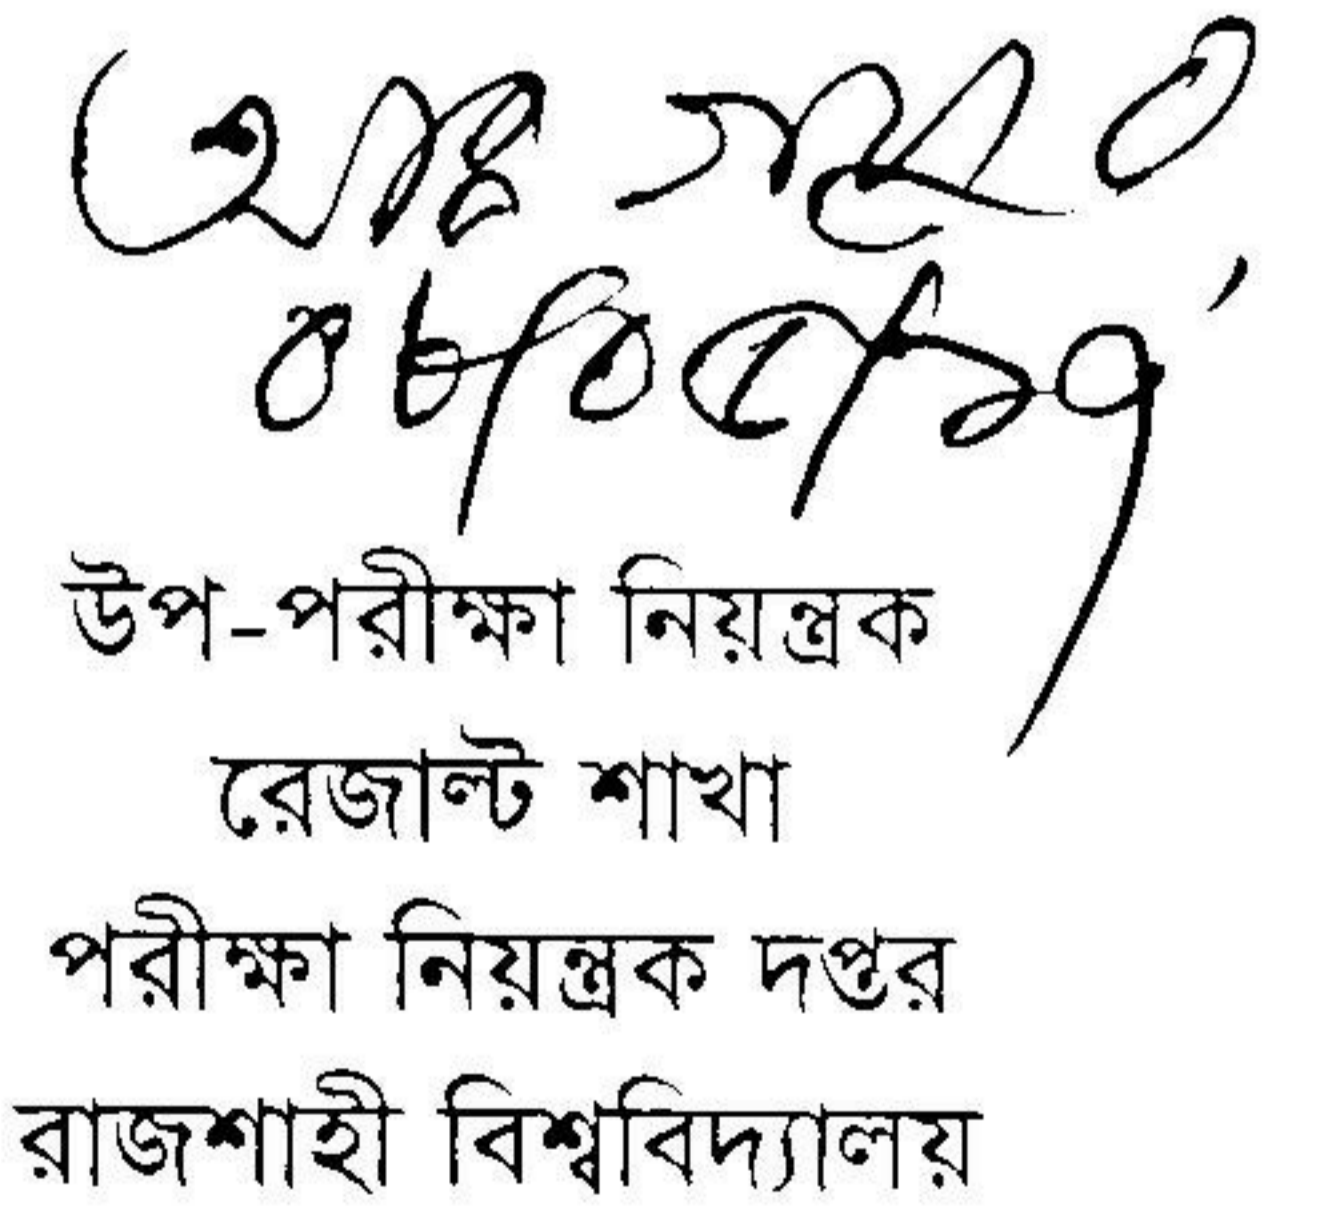 ০৮/০৫/১৭
উপ-পরীক্ষা নিয়ন্ত্রক
রেজাল্ট শাখা
পরীক্ষা নিয়ন্ত্রক দপ্তর
রাজশাহী বিশ্ববিদ্যালয়